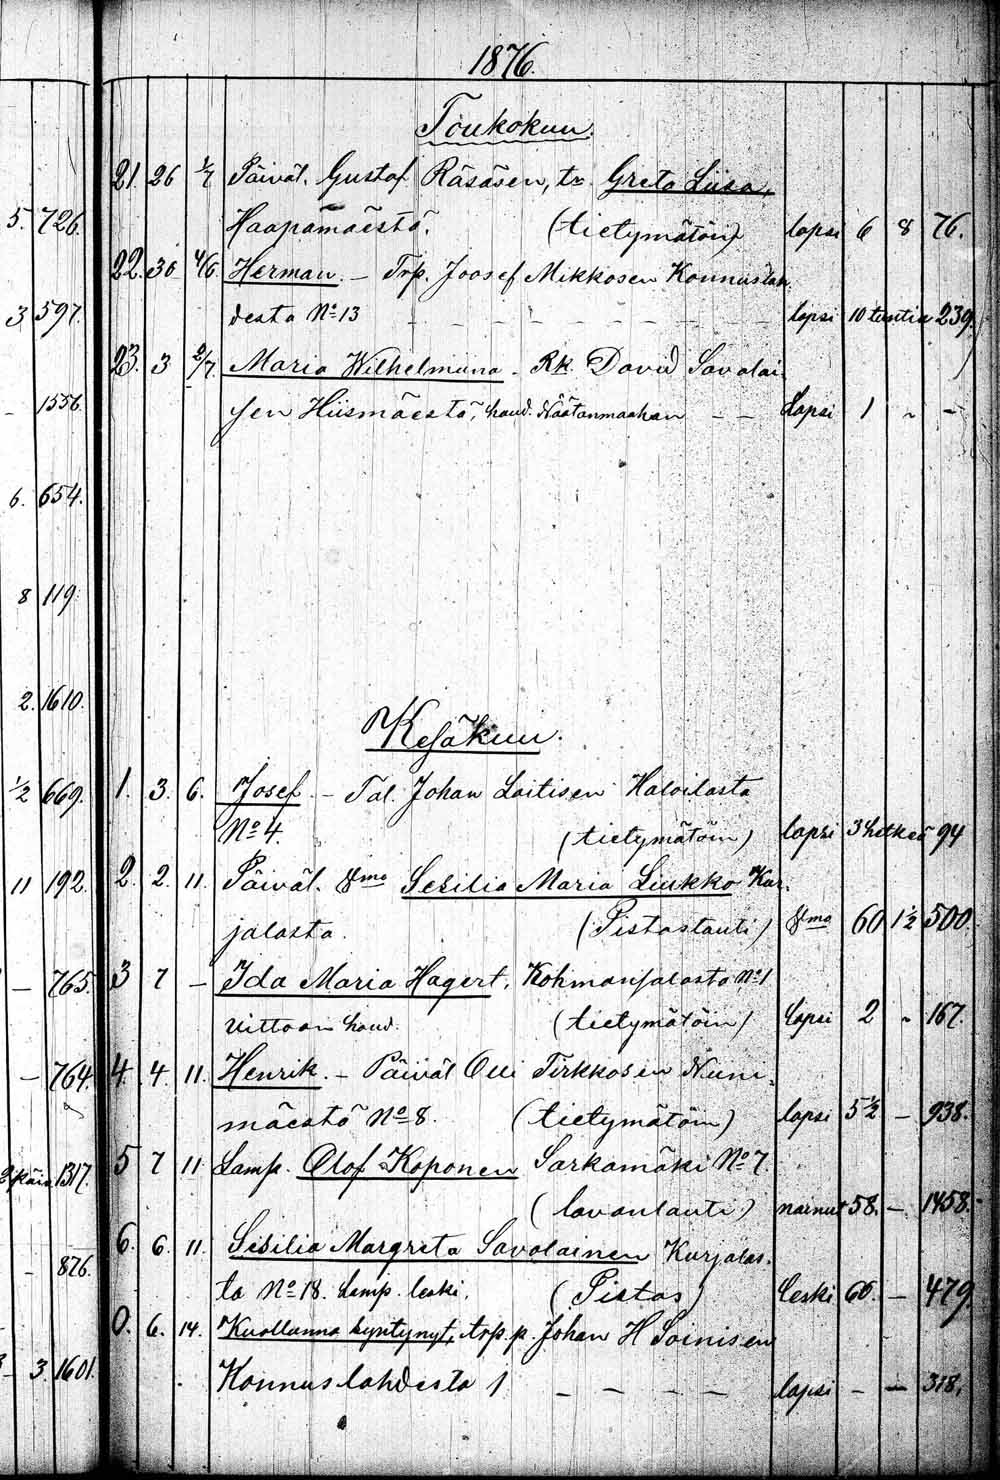 1876.
Toukokuu.
21. 26 1/7 Päiväl. Gustaf Räsäsen, tr. Greta Liisa,
5. 726. Haapamäestä. (tietymätöin) lapsi 6 8 76.
22. 30 4/6 Herman. – Trp. Joosef Mikkosen Konnuslah
3 597. desta No 13 – – – – – – – lapsi 10 tuntia 239.
23. 3 2/7. Maria Wilhelmiina. Rk. David Savolai
– 1556. sen Hiismäestä, haud. Näätänmaahan – – Lapsi 1 „ –
6. 654.
8 119.
2. 1610.
Kesäkuu.
1/2 669. 1. 3. 6. Josef. – Tal. Johan Laitisen Haloilasta
No 4. (tietymätöin) lapsi 3 hetkeä 94
11 192. 2. 2. 11. Päiväl. Vmo Sesilia Maria Liukko Kur.
jalasta. (Pistostauti) Vmo 60 1 1/2 500.
– 765. 3 7 – Ida Maria Hagert, Kohmansalosta No 1
Vittaan haud. (tietymätöin) Lapsi 2 „ 167.
– 764. 4. 4 11. Henrik. – Päiväl Olli Tirkkosen Nuni.
mäestä No 8. (tietymätöin) lapsi 5 1/2 – 938.
1317. 5 7 11 Lamp. Olof Koponen Sarkamäki No 7
(lavantauti) nainut 58. – 1458.
– 876. 6. 6. 11. Sesilia Margreta Savolainen Kurjalas.
ta No 18. Lamp. leski. (Pistos) Leski 60. – 479.
0. 6. 14. Kuollunna syntynyt, trp. p. Johan H Soinisen
– 3. 1601. Konnuslahdesta 1 – – – – lapsi – – 318.